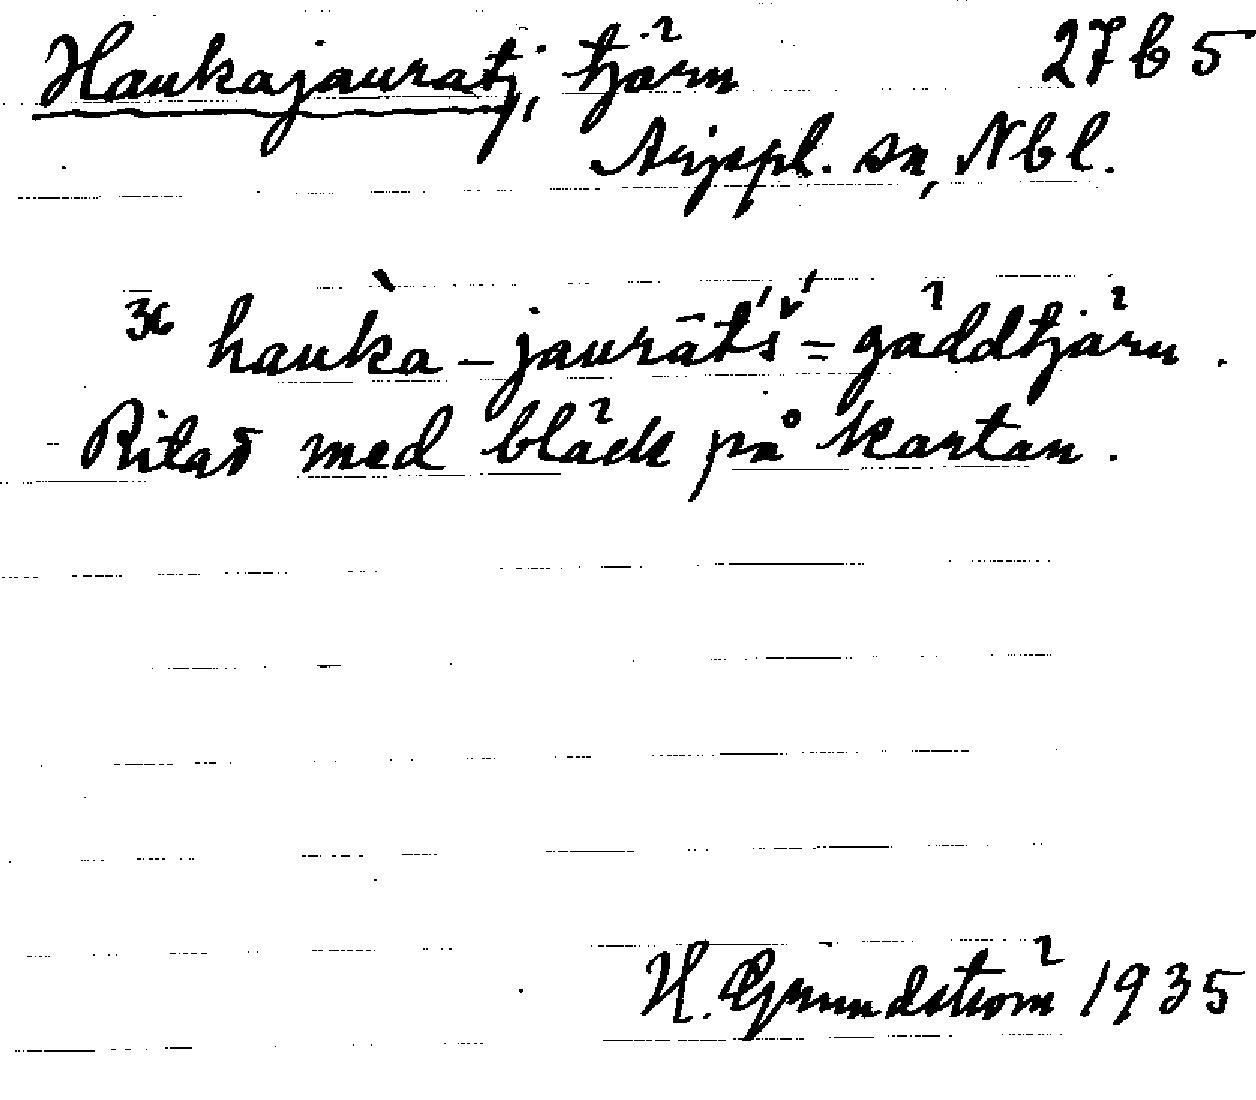 Haukajauratj, tjärn 27b5
Arjeppl. sn, Nbl.
36 hauk̀a - jaurāt́š́ = gäddtjärn.
Ritad med bläck på kartan.
H. Grundström 1935